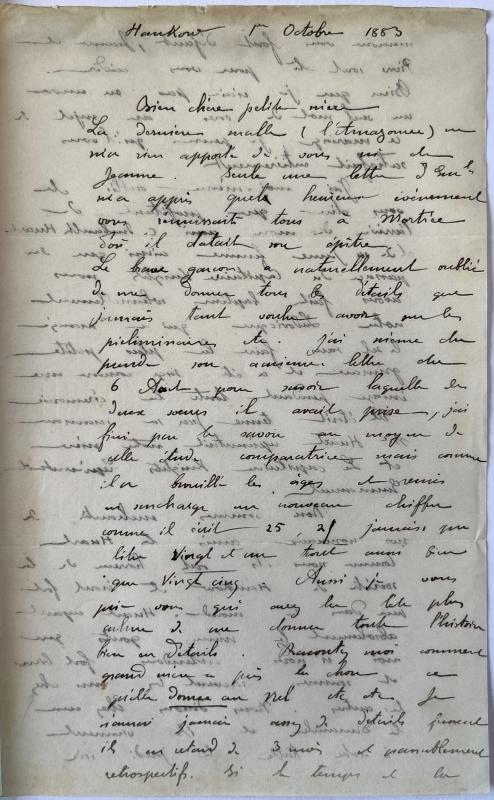 Hankow 1er Octobre 1883
Bien chère petite mère
La dernière malle (l'Amazone) ne
m'a rien apporté de vous ni de
Jeanne. Seule une lettre d'
m'a appris quel heureux événement
vous réunissait tous à
d'où il datait son épître.
Le brave garçon a naturellement oublié
de me donner tous les détails que
j'aurais tant voulu avoir sur les
préliminaires etc. j'ai même du
prendre son ancienne lettre du
6 Aout pour savoir laquelle des
deux sœurs il avait prise, j'ai
fini par le savoir au moyen de
cette étude comparative mais comme
il a brouillé les âges et remis
en surcharge un nouveau chiffre
comme il écrit 25, 21 j'aurais pu
lire vingt et un tout aussi bien
que vingt cinq. Aussi je vous
prie vous qui avez la tête plus
calme de me donner toute l'histoire
bien en détails. Racontez moi comment
grand mère a pris la chose ce
qu'elle donne au etc etc Je
n'aurai jamais assez de détails fussent
ils en retard de 3 mois et passablement
retrospectifs. Si le temps et la